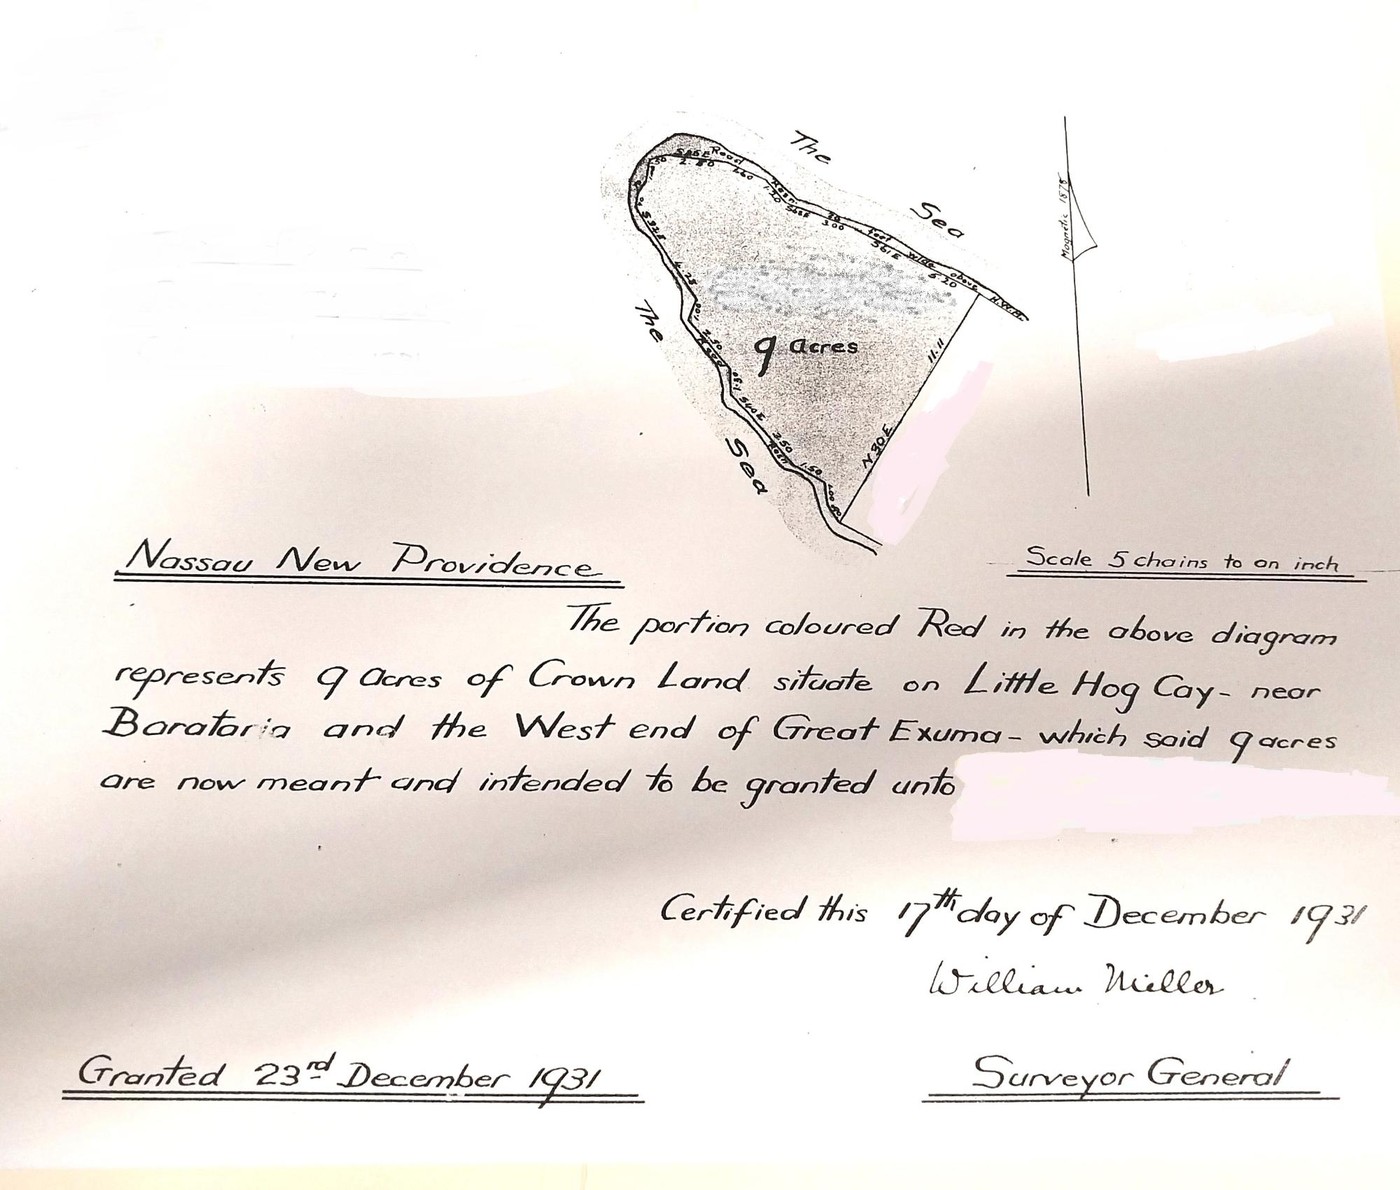 The
Sea
Magnetic 1875
S85E Road
2.80
1.20
S68E
3.00
20
feet
S61E
wide above
5.20
H.W.M.
S32E
4.25
The
1.00
2.50
9 acres
11.11
N 30 E
S40E
3.50
Road
1.50
Sea
Nassau New Providence
Scale 5 chains to an inch
The portion coloured Red in the above diagram
represents 9 acres of Crown Land situate on Little Hog Cay - near
Barataria and the West end of Great Exuma - which said 9 acres
are now meant and intended to be granted unto
Certified this 17th day of December 1931
William Miller
Granted 23rd December 1931
Surveyor General